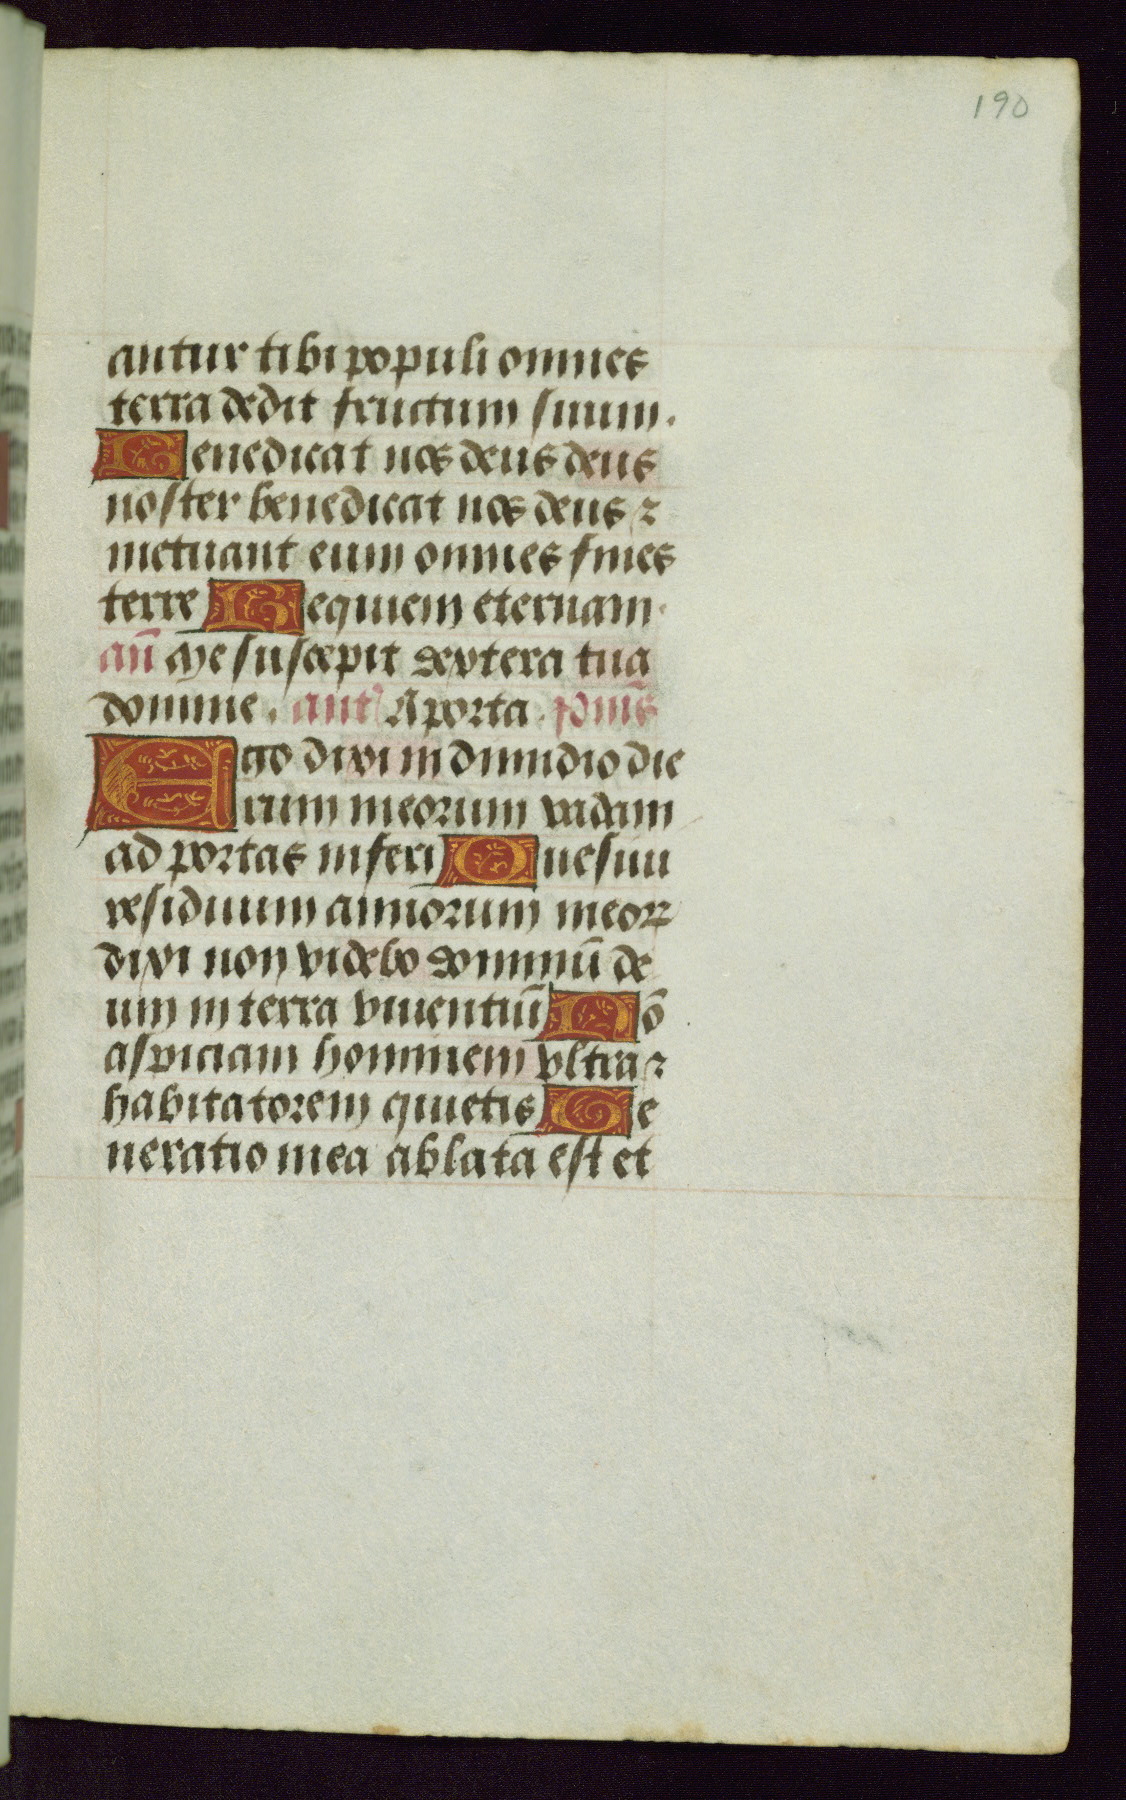 190
antur tibi populi omnes
terra dedit fructum suum.
Benedicat nos deus deus
noster benedicat nos deus ⁊
metuant eum omnes fines
terre Requiem eternam.
añ Me suscepit dextera tua
domine. ant' A porta. p̄s̄
Ego dixi in dimidio die
rum meorum vadam
ad portas inferi Quesiui
residuum annorum meoꝝ
dixi non videbo dominū de
um in terra viuentiū Nō
aspiciam hominem vltra ⁊
habitatorem quietis Ge
neratio mea ablata est et